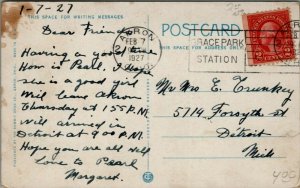 1-7-27
THIS SPACE FOR WRITING MESSAGES.
POSTCARD
Dear Friend,
AKRON
FEB 7
1927
GRACE PARK
STATION
Having a good time
How is Pearl. I hope
she is a good girl
Will leave Akron
Thursday at 1:55 P.M.
Will arrive in
Detroit at 9:00 P.M.
Hope you are all well
Love to Pearl
Margaret.
Mr & Mrs E. Trunkey
5714 Forsyth st
Detroit
Mich
400